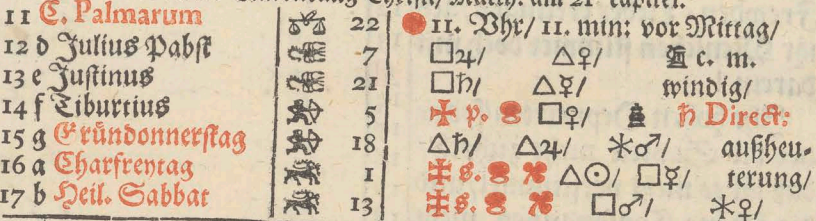 11 C. Palmarum 22 11. Vhr/ 11. min: vor Mittag/
12 d Julius Pabst 7 □♃/ △♀/ c. m.
13 e Justinus 21 □♄/ △☿/ windig/
14 f Tiburtius 5 ✠ p. □♀/ ♄ Direct:
15 g Gründonnerstag 18 △♄/ △♃/ ⚹♂/ außheu-
16 a Charfreytag 1 ✠ s. △☉/ □☿/ terung/
17 b Heil. Sabbat 13 ✠ s. □♂/ ⚹♀/